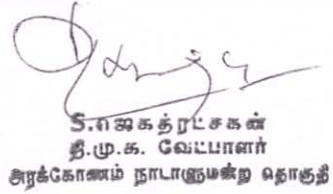 S.ஜெகத்ரட்சகன்
தி.மு.க. வேட்பாளர்
அரக்கோணம் நாடாளுமன்ற தொகுதி